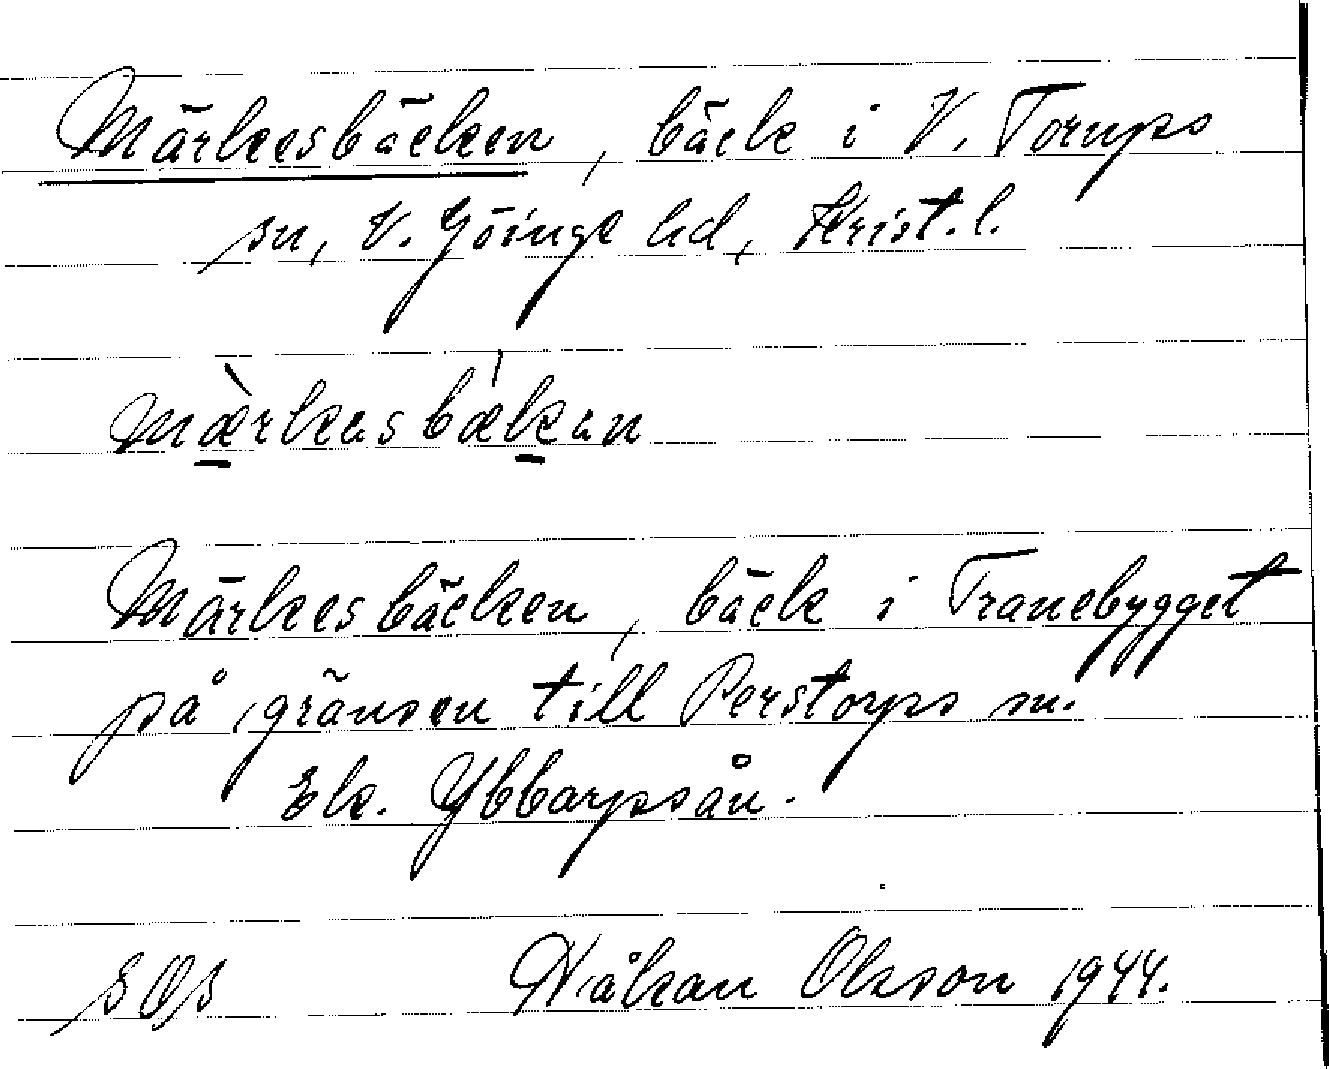 Märkesbäcken, bäck i V. Torups
sn, V. Göinge hd, Krist. l.
mæ̀rkasbækan
Märkesbäcken, bäck i Tranebygget
på gränsen till Perstorps sn.
Ek. Ybbarpsån.
SOS Håkan Olsson 1944.